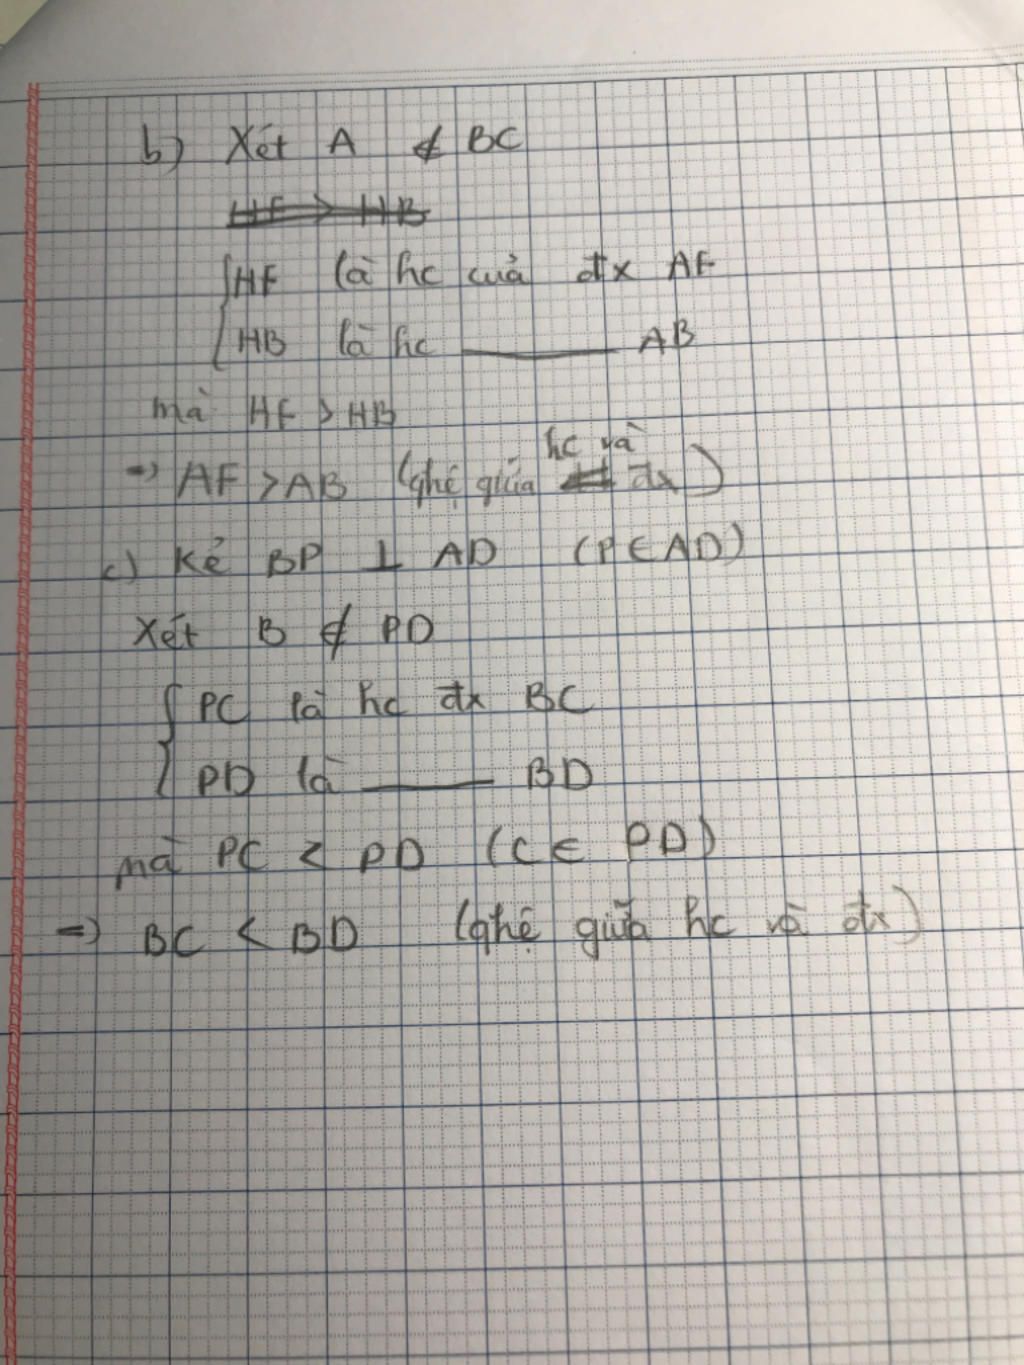 b) Xét A ∉ BC
HF > HB
HF là hc của đx AF
HB là hc ——— AB
mà HF > HB
hc và
=> AF > AB (qhệ giữa đx)
c) Kẻ BP ⊥ AD (P ∈ AD)
Xét B ∉ PD
PC là hc đx BC
PD là ——— BD
mà PC < PD (C ∈ PD)
=> BC < BD (qhệ giữa hc và đx)